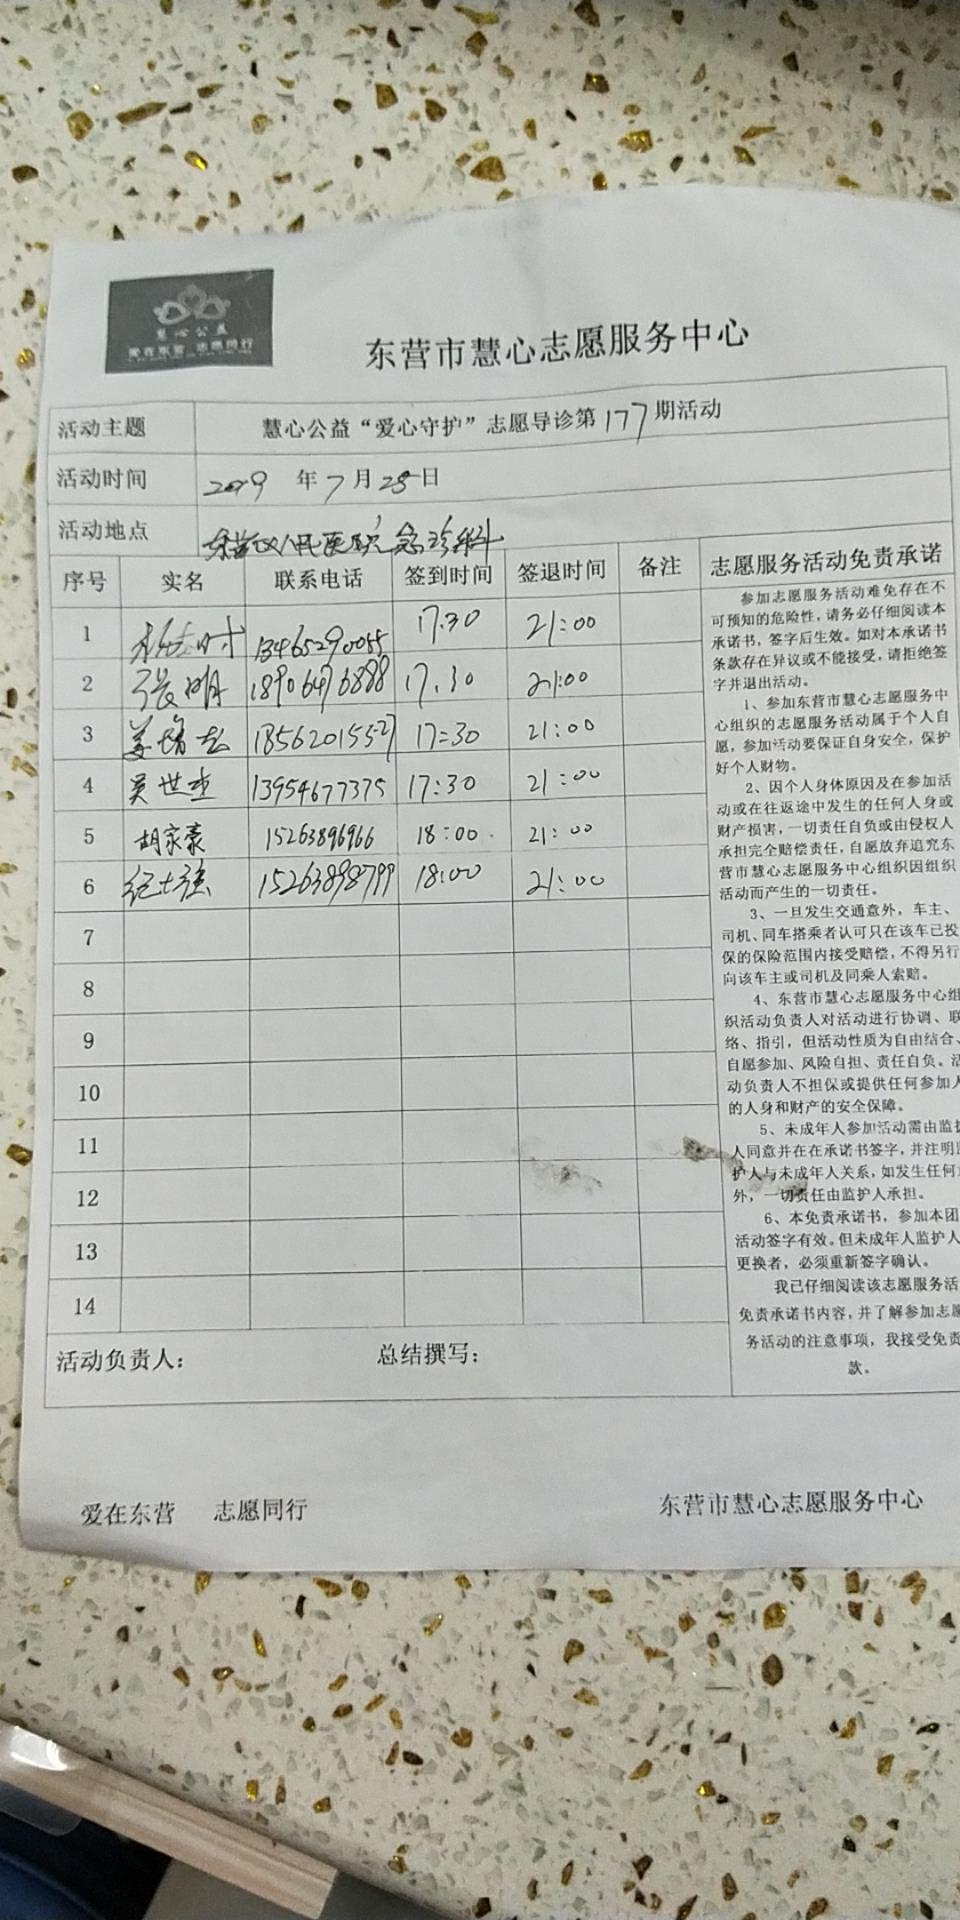 慧心公益
爱在东营 志愿同行
东营市慧心志愿服务中心
活动主题 慧心公益“爱心守护”志愿导诊第177期活动
活动时间 2019 年 7 月 28 日
活动地点 人民医院 急诊科
序号 实名 联系电话 签到时间 签退时间 备注
1 13465290055 17:30 21:00
2 张明 18906476888 17.30 21:00
3 18562015527 17:30 21:00
4 吴世杰 13954677375 17:30 21:00
5 胡家豪 15263896966 18:00 21:00
6 纪士强 15263898799 18:00 21:00
7
8
9
10
11
12
13
14
活动负责人： 总结撰写：
志愿服务活动免责承诺
参加志愿服务活动难免存在不
可预知的危险性，请务必仔细阅读本
承诺书，签字后生效。如对本承诺书
条款存在异议或不能接受，请拒绝签
字并退出活动。
1、参加东营市慧心志愿服务中
心组织的志愿服务活动属于个人自
愿，参加活动要保证自身安全，保护
好个人财物。
2、因个人身体原因及在参加活
动或在往返途中发生的任何人身或
财产损害，一切责任自负或由侵权人
承担完全赔偿责任，自愿放弃追究东
营市慧心志愿服务中心组织因组织
活动而产生的一切责任。
3、一旦发生交通意外，车主、
司机、同车搭乘者认可只在该车已投
保的保险范围内接受赔偿，不得另行
向该车主或司机及同乘人索赔。
4、东营市慧心志愿服务中心组
织活动负责人对活动进行协调、联
络、指引，但活动性质为自由结合、
自愿参加、风险自担、责任自负。活
动负责人不担保或提供任何参加人
的人身和财产的安全保障。
5、未成年人参加活动需由监护
人同意并在在承诺书签字，并注明监
护人与未成年人关系，如发生任何意
外，一切责任由监护人承担。
6、本免责承诺书，参加本团
活动签字有效。但未成年人监护人
更换者，必须重新签字确认。
我已仔细阅读该志愿服务活
免责承诺书内容，并了解参加志愿
务活动的注意事项，我接受免责
款。
爱在东营 志愿同行 东营市慧心志愿服务中心